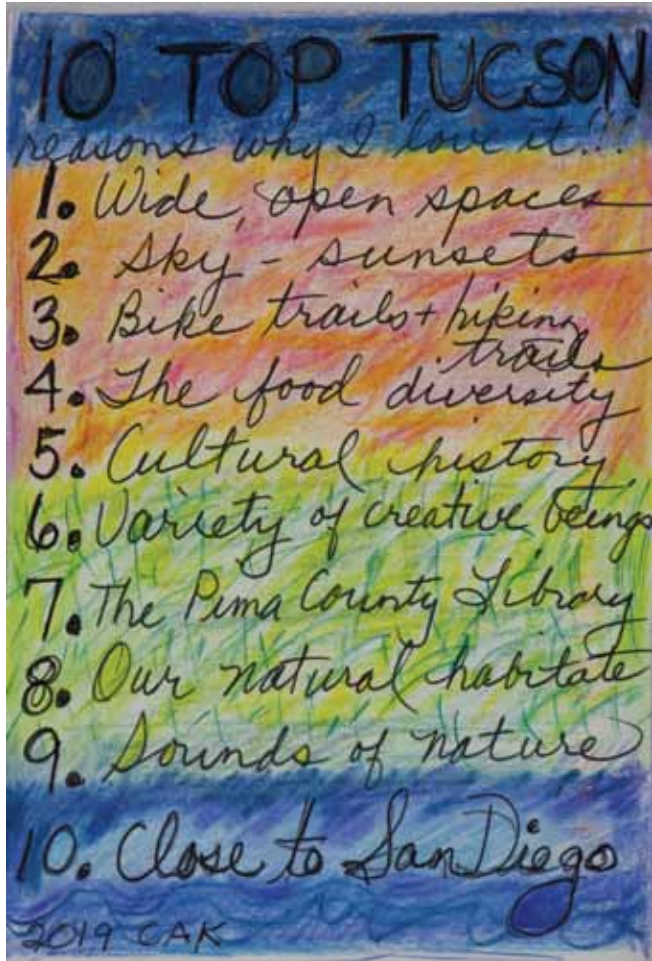 10 TOP TUCSON
reasons why I love it!!!
1. Wide, open spaces
2. Sky - sunsets
3. Bike trails + hiking
trails
4. The food diversity
5. Cultural history
6. Variety of creative beings
7. The Pima County Library
8. Our natural habitate
9. Sounds of nature
10. Close to San Diego
2019 CAK